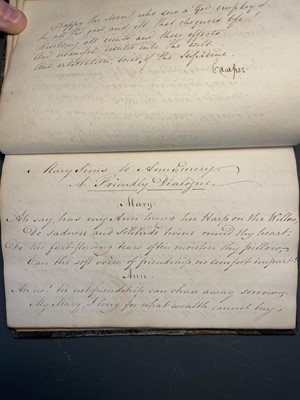 Happy the Man, who sees a God employ'd
In all the good and ill, that chequers life!
Resolving all events and their effects
And manifold results into the will
And arbitration wise of the Supreme.
Cowper
Mary Sims to Ann Emery
A Friendly Dialogue
Mary
Ah say, has my Ann hung her Harp on the Willow,
Do sadness and solitude twine round thy heart;
Do the fast flowing tears often moisten thy pillow,
Can the soft voice of friendship no comfort impart?
Ann
Ah no! tis not friendship can chase away sorrow,
My Mary, I long for what wealth cannot buy,